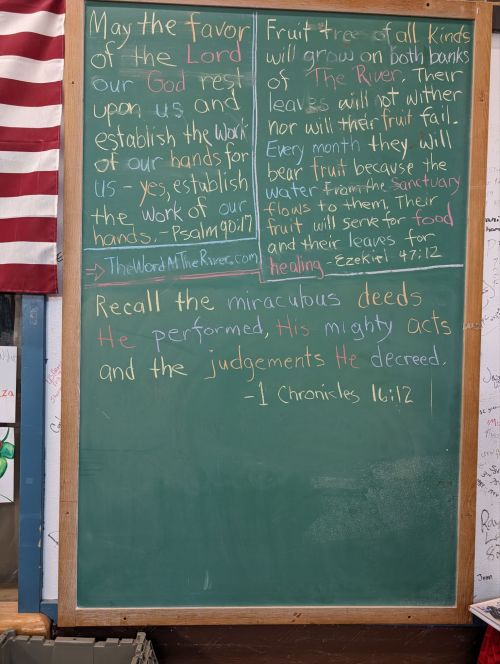 May the favor
of the Lord
our God rest
upon us and
establish the work
of our hands for
us - yes, establish
the work of our
hands. - Psalm 90:17
→ TheWordAtTheRiver.com
Fruit tree of all kinds
will grow on both banks
of The River. Their
leaves will not wither
nor will their fruit fail.
Every month they will
bear fruit because the
water from the sanctuary
flows to them. Their
fruit will serve for food
and their leaves for
healing - Ezekiel 47:12
Recall the miraculous deeds
He performed, His mighty acts
and the judgements He decreed.
-1 Chronicles 16:12